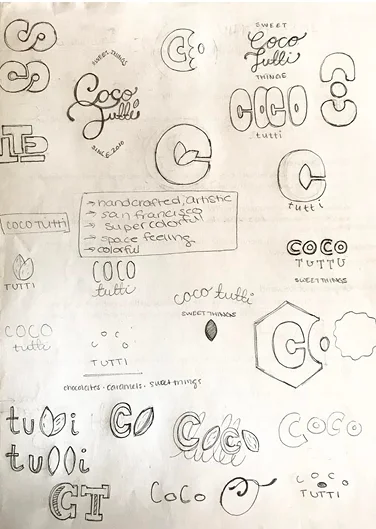 SWEET
Coco
Tutti
THINGS
SWEET THINGS
Coco
Tutti
SINCE 2010
COCO
tutti
C
C
tutti
TT
→ handcrafted, artistic
→ san francisco
→ supercolorful
→ space feeling
→ colorful
COCO TUTTI
COCO
TUTTU
SWEET THINGS
TUTTI
COCO
tutti
coco tutti
SWEET THINGS
COCO
tutti
TUTTI
C
chocolates · caramels · sweet things
tutti
CO
Coco
COCO
tutti
CT
CoCo
COCO
TUTTI